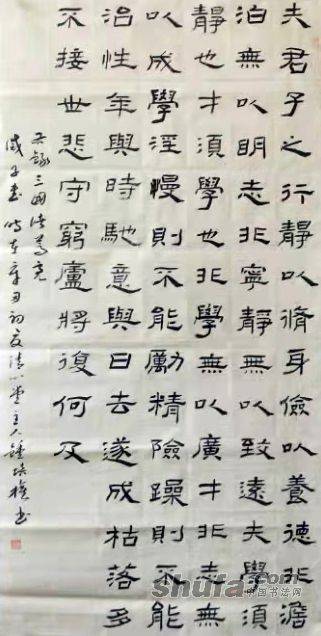 夫君子之行靜以脩身儉以養德非澹
泊無以明志非寧靜無以致遠夫學須
靜也才須學也非學無以廣才非志無
以成學淫慢則不能勵精險躁則不能
治性年與時馳意與日去遂成枯落多
不接世悲守窮廬將復何及
錄三國諸葛亮
誡子書時在辛丑初夏清心堂主人鍾權書
shufa.com
中国书法网